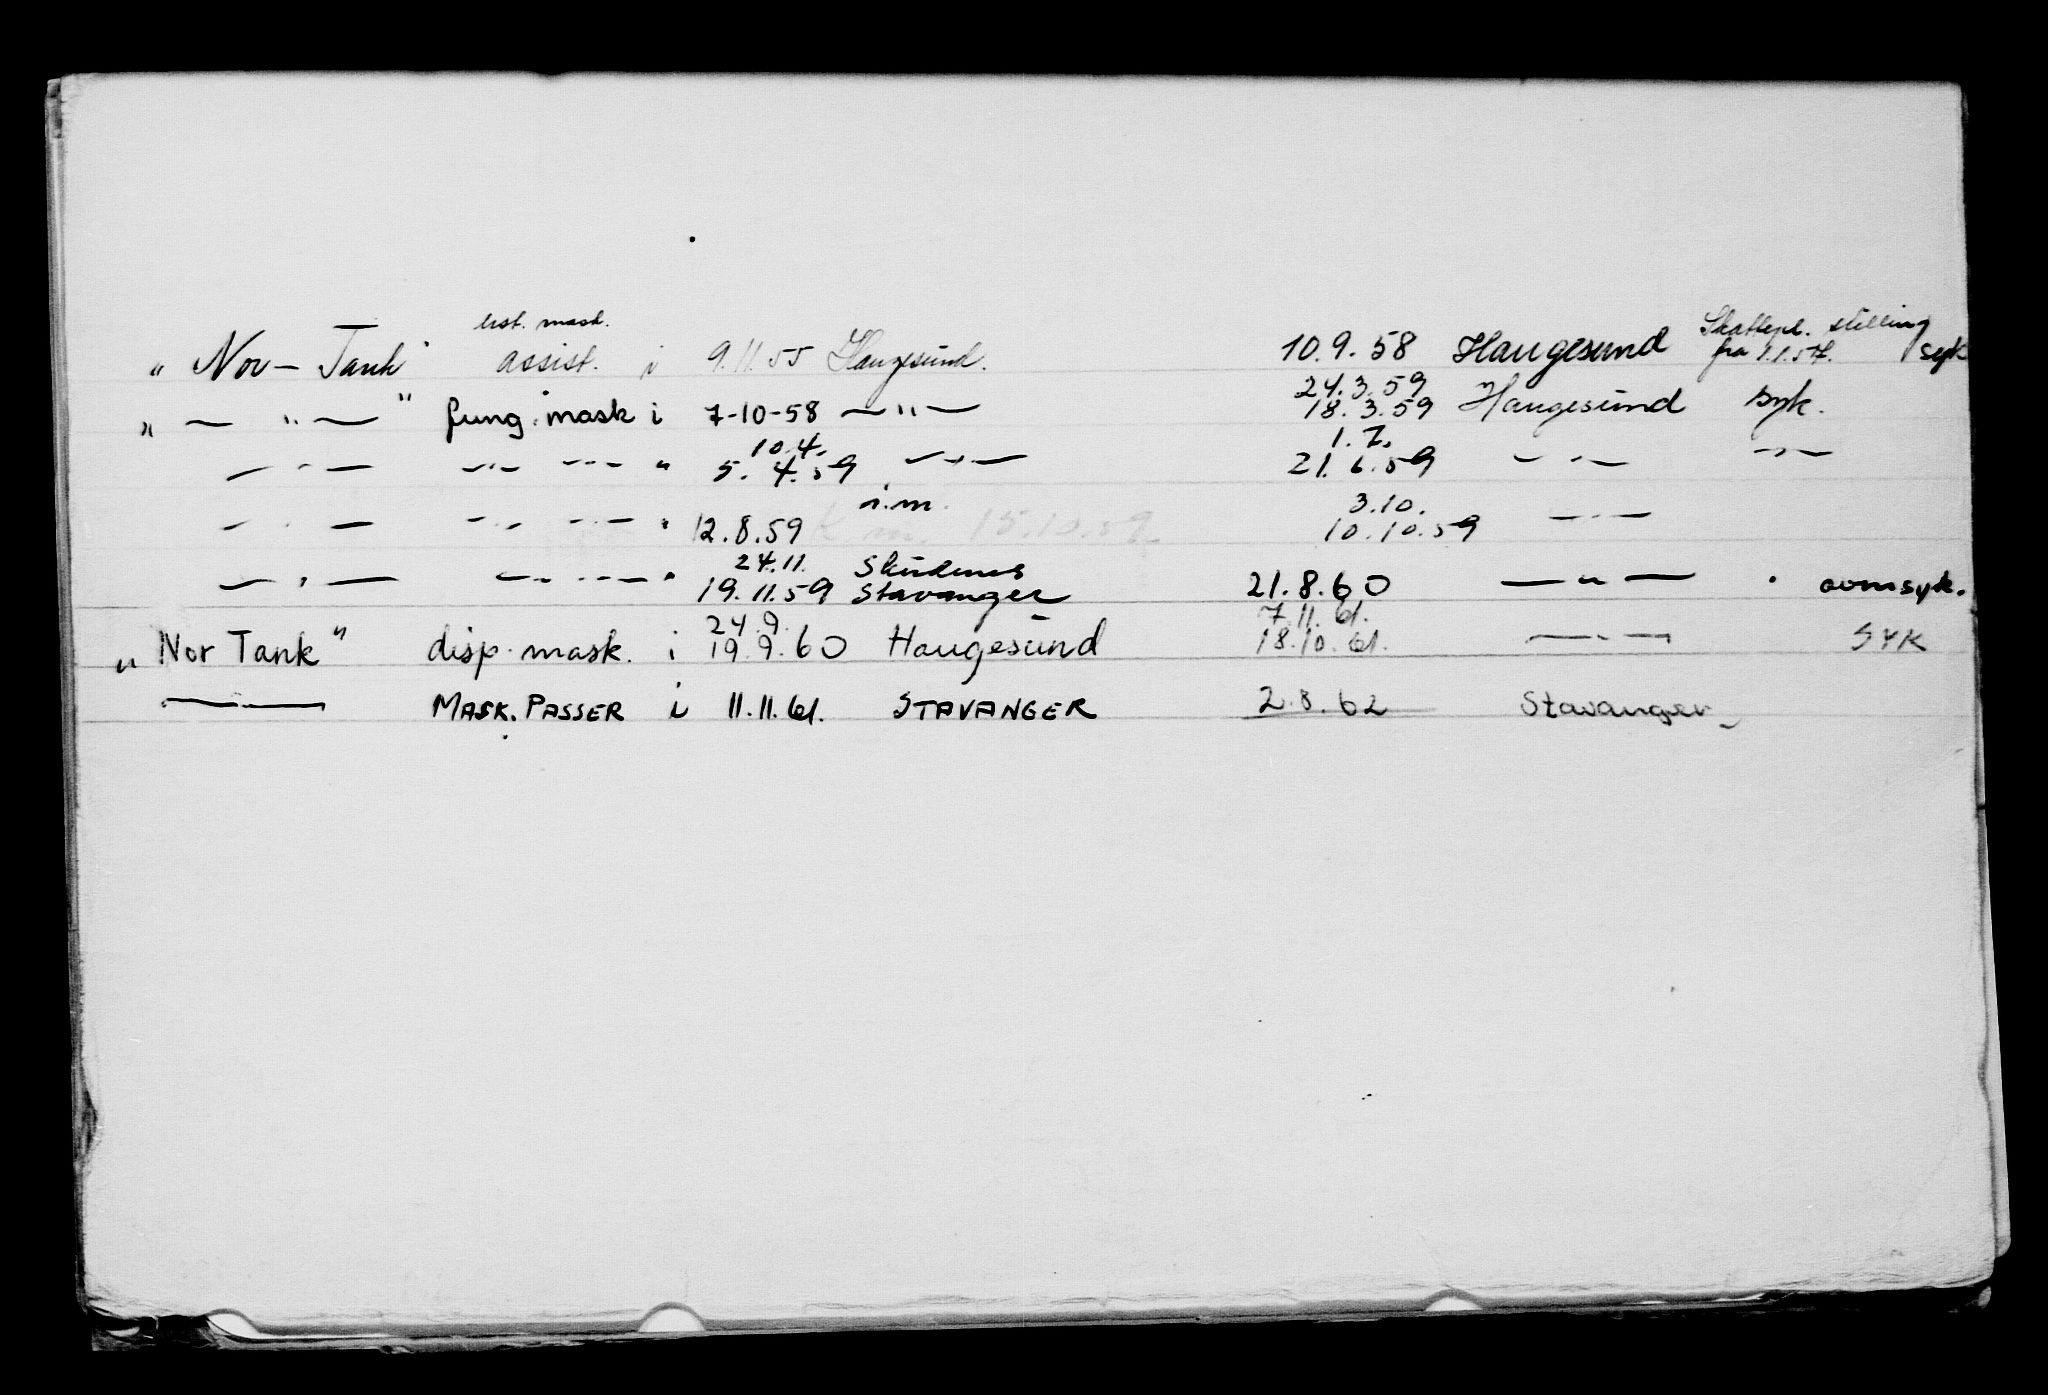 best. mask.
„ Nor – Tank " assist. i 9.11.55 Haugesund. 10.9.58 Haugesund Skattepl. stilling fra 1.1.57. syk
24.3.59
„ — „ — " fung. mask i 7-10-58 — „ — 18.3.59 Haugesund syk.
10.4. 1.7.
— " — — " — — " — " 5.4.59 — " — 21.6.59 — " — — " —
i.m. 3.10.
— " — — " — — " — " 12.8.59 15.10.59 10.10.59 — " —
24.11. Skudenes
— " — — " — — " — " 19.11.59 Stavanger 21.8.60 — " — " armsyk.
24.9. 7.11.61.
„ Nor Tank " disp. mask. i 19.9.60 Haugesund 18.10.61. — " — SYK
— " — MASK. PASSER i 11.11.61. STAVANGER 2.8.62 Stavanger